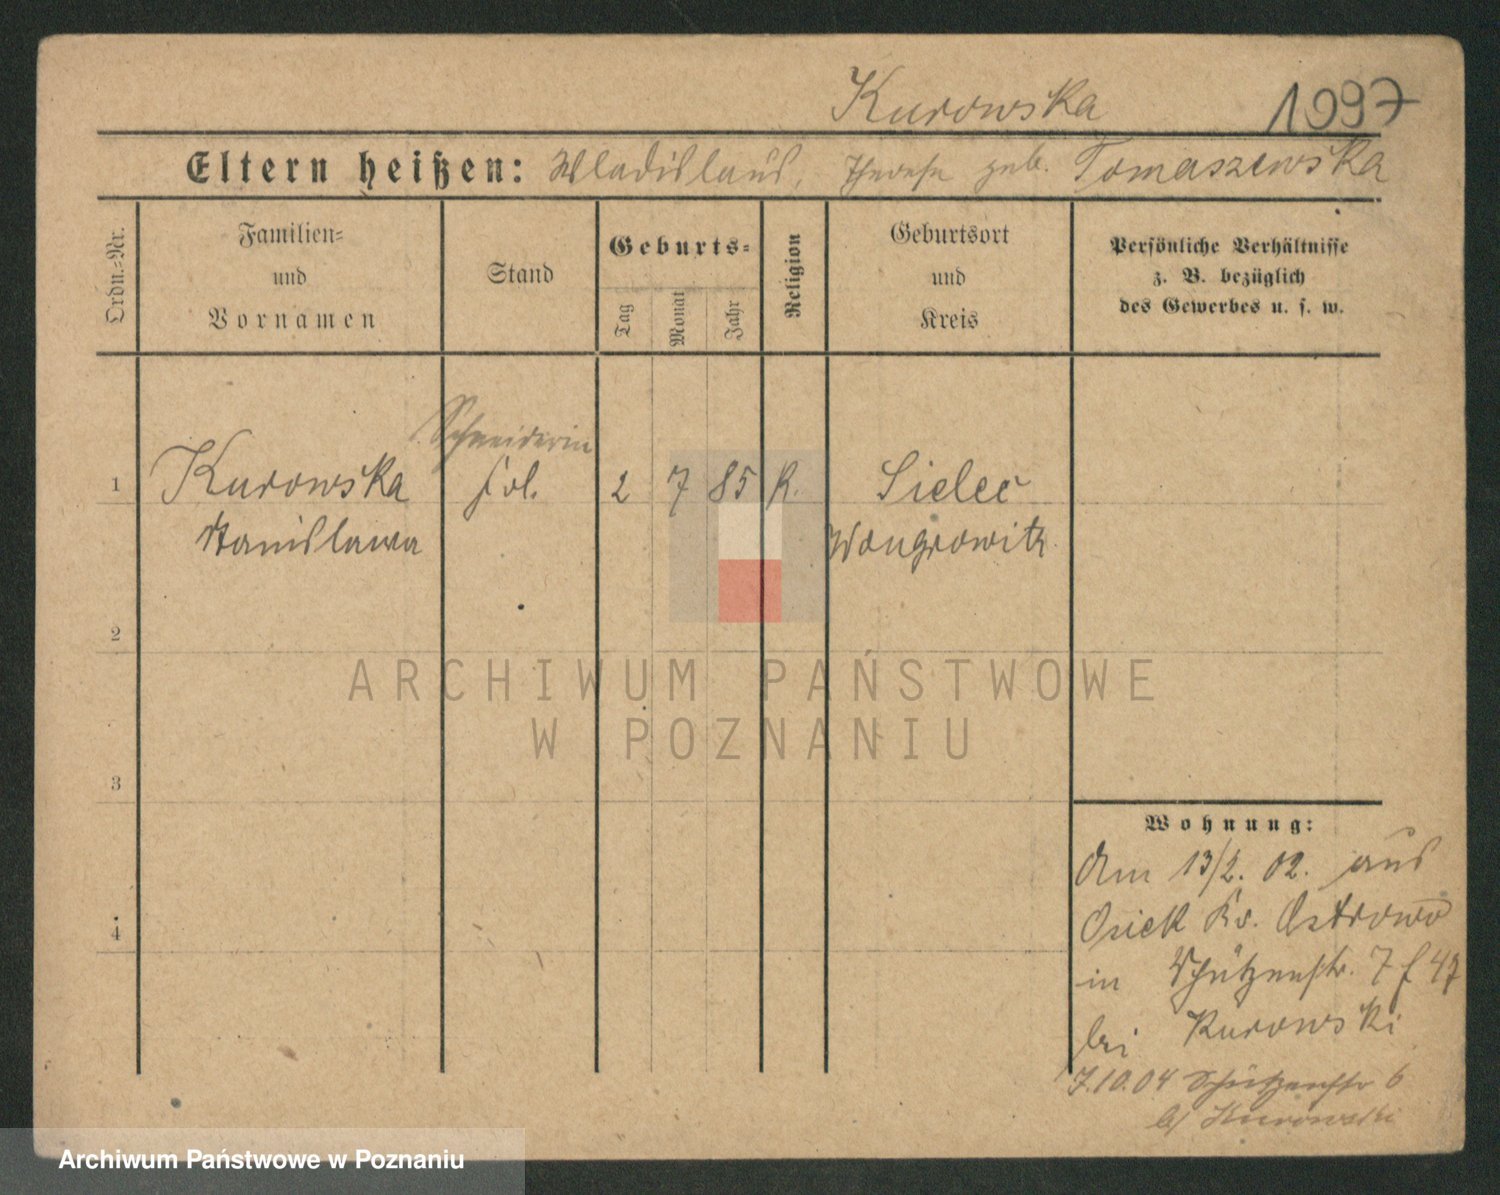 Kurowska 1997
Eltern heißen: Wladislaus, Therese geb. Tomaszewska
Ordn.-Nr.
Familien-
und
Vornamen
Stand
Geburts-
Tag
Monat
Jahr
Religion
Geburtsort
und
Kreis
Persönliche Verhältnisse
z. B. bezüglich
des Gewerbes u. s. w.
Schneiderin
1 Kurowska led. 2 7 85 K. Sielec
Stanislawa Wongrowitz
2
3
4
Wohnung:
Am 13/2. 02. aus
Osiek Kr. Ostrowo
in Schützenstr. 7
bei Kurowski
7.10.04 Schützenstr 6
b/ Kurowski
ARCHIWUM PAŃSTWOWE
W POZNANIU
Archiwum Państwowe w Poznaniu